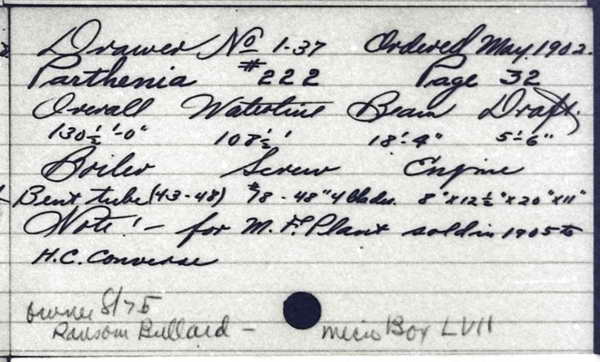 Drawer No 1-37 Ordered May, 1902.
Parthenia #222 Page 32
Overall Waterline Beam Draft.
130½'-0" 108½' 18'-9" 5'-6"
Boiler Screw Engine
Bent tube (43-48) 78-48" 4 blades. 8"x12½"x20"x11"
Note:- for M. F. Plant sold in 1905 to
H.C. Converse
owner 8/75
Ransom Bullard - micro Box LVII